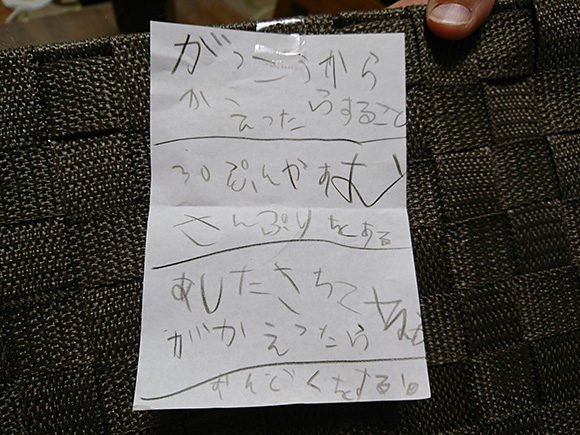 がっこうから
かえったらすること
30ぷんか
さんぷりをする
あしたさちこ
がかえったら
おんどくをする